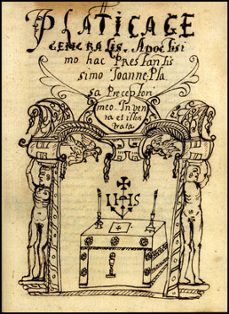 PLATICAGE
GENERALIS. A Doctissi
mo hac Prestantis
simo Joanne Pla
sa Preceptori
meo. Inven
ta et illu
strata
IHS